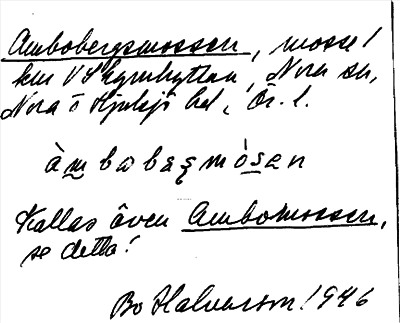 Ambobergsmossen, mosse 1
km V Gyrhyttan, Nora sn,
Nora o Hjulsjö hd, Ör. l.
àmbəbæʂmòsən
Kallas även Ambomossen,
se detta!
Bo Halvarson 1946